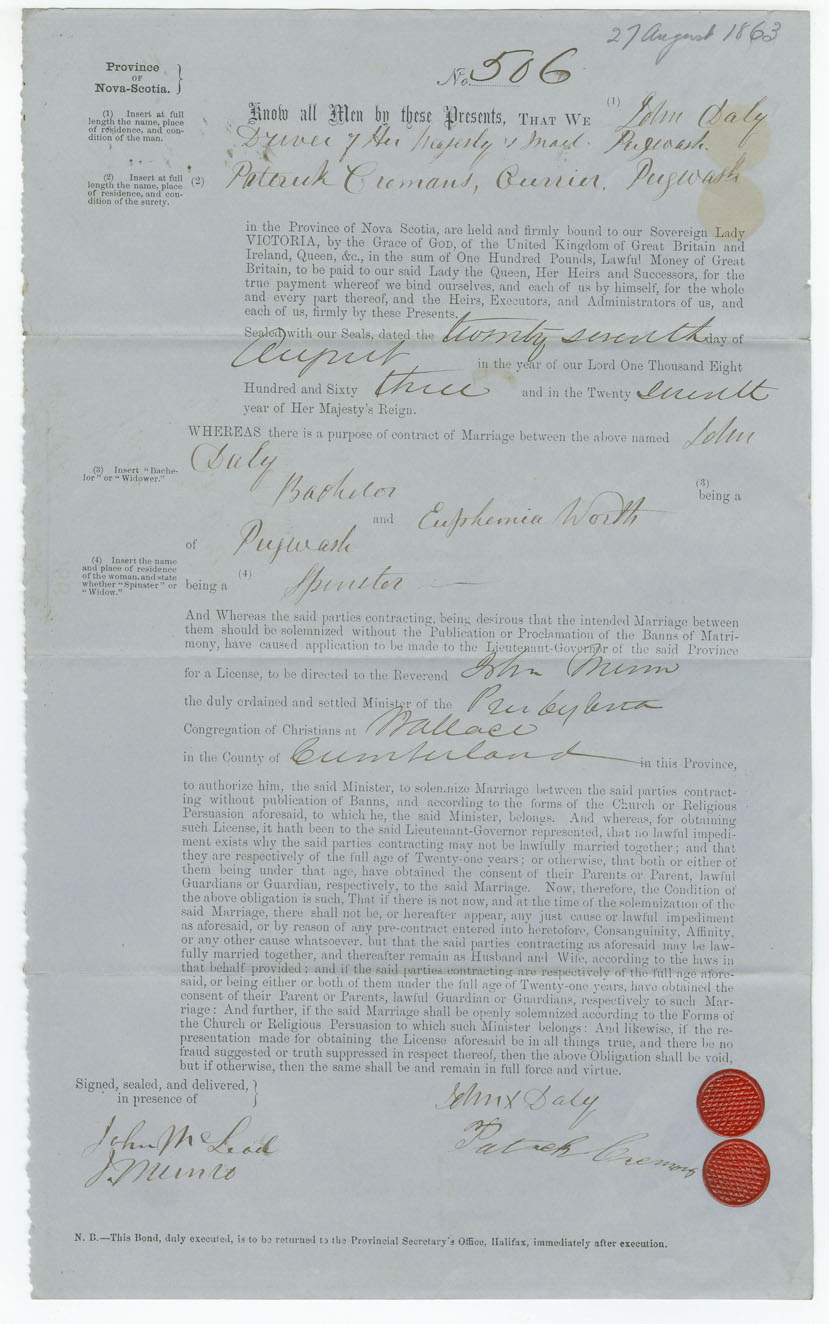 27 August 1863
Province
OF
Nova-Scotia.
No. 506
(1) Insert at full
length the name, place
of residence, and con-
dition of the man.
Know all Men by these Presents, THAT WE (1) John Daly
Driver of Her Majesty's Mail. Pugwash.
(2) Insert at full
length the name, place
and residence, and con-
dition of the surety.
(2) Patrick Cremans, Currier, Pugwash
in the Province of Nova Scotia, are held and firmly bound to our Sovereign Lady
VICTORIA, by the Grace of GOD, of the United Kingdom of Great Britain and
Ireland, Queen, &c., in the sum of One Hundred Pounds, Lawful Money of Great
Britain, to be paid to our said Lady the Queen, Her Heirs and Successors, for the
true payment whereof we bind ourselves, and each of us by himself, for the whole
and every part thereof, and the Heirs, Executors, and Administrators of us, and
each of us, firmly by these Presents.
Sealed with our Seals, dated the twenty seventh day of
August in the year of our Lord One Thousand Eight
Hundred and Sixty three and in the Twenty seventh
year of Her Majesty's Reign.
WHEREAS there is a purpose of contract of Marriage between the above named John
Daly
(3) Insert "Bache-
lor" or "Widower."
(3)
Bachelor being a
and Euphemia Worth
of Pugwash
(4) Insert the name
and place of residence
of the woman, and state
whether "Spinster" or
"Widow."
being a (4) Spinster
And Whereas the said parties contracting, being desirous that the intended Marriage between
them should be solemnized without the Publication or Proclamation of the Banns of Matri-
mony, have caused application to be made to the Lieutenant-Governor of the said Province
for a License, to be directed to the Reverend John Munro
the duly ordained and settled Minister of the Presbyterian
Congregation of Christians at Wallace
in the County of Cumberland in this Province,
to authorize him, the said Minister, to solemnize Marriage between the said parties contract-
ing without publication of Banns, and according to the forms of the Church or Religious
Persuasion aforesaid, to which he, the said Minister, belongs. And whereas, for obtaining
such License, it hath been to the said Lieutenant-Governor represented, that no lawful impedi-
ment exists why the said parties contracting may not be lawfully married together; and that
they are respectively of the full age of Twenty-one years; or otherwise, that both or either of
them being under that age, have obtained the consent of their Parents or Parent, lawful
Guardians or Guardian, respectively, to the said Marriage. Now, therefore, the Condition of
the above obligation is such, That if there is not now, and at the time of the solemnization of the
said Marriage, there shall not be, or hereafter appear, any just cause or lawful impediment
as aforesaid, or by reason of any pre-contract entered into heretofore, Consanguinity, Affinity,
or any other cause whatsoever, but that the said parties contracting as aforesaid may be law-
fully married together, and thereafter remain as Husband and Wife, according to the laws in
that behalf provided; and if the said parties contracting are respectively of the full age afore-
said, or being either or both of them under the full age of Twenty-one years, have obtained the
consent of their Parent or Parents, lawful Guardian or Guardians, respectively to such Mar-
riage: And further, if the said Marriage shall be openly solemnized according to the Forms of
the Church or Religious Persuasion to which such Minister belongs: And likewise, if the re-
presentation made for obtaining the License aforesaid be in all things true, and there be no
fraud suggested or truth suppressed in respect thereof, then the above Obligation shall be void,
but if otherwise, then the same shall be and remain in full force and virtue.
Signed, sealed, and delivered,
in presence of
John X Daly
John McLeod
Patrick Cremans
J. Munro
N. B.—This Bond, duly executed, is to be returned to the Provincial Secretary's Office, Halifax, immediately after execution.